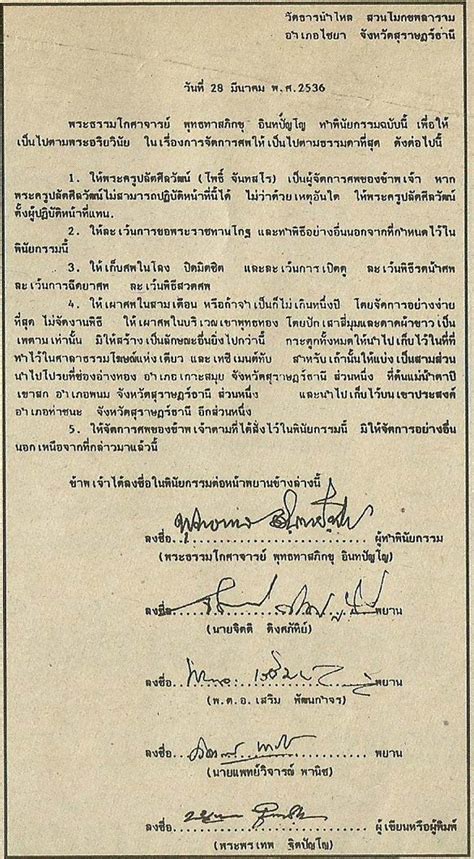 วัดธารน้ำไหล สวนโมกขพลาราม
อำเภอไชยา จังหวัดสุราษฎร์ธานี
วันที่ 28 มีนาคม พ.ศ.2536
พระธรรมโกศาจารย์ พุทธทาสภิกขุ อินทปัญโญ ทำพินัยกรรมฉบับนี้ เพื่อให้
เป็นไปตามพระอริยวินัย ในเรื่องการจัดการศพให้เป็นไปตามธรรมดาที่สุด ดังต่อไปนี้
1. ให้พระครูปลัดศีลวัฒน์ (โพธิ์ จันทสโร) เป็นผู้จัดการศพของข้าพเจ้า หาก
พระครูปลัดศีลวัฒน์ไม่สามารถปฏิบัติหน้าที่นี้ได้ ไม่ว่าด้วยเหตุอันใด ให้พระครูปลัดศีลวัฒน์
ตั้งผู้ปฏิบัติหน้าที่แทน.
2. ให้ละเว้นการขอพระราชทานโกฐ และทำพิธีอย่างอื่นนอกจากที่กำหนดไว้ใน
พินัยกรรมนี้
3. ให้เก็บศพในโลง ปิดมิดชิด และละเว้นการเปิดดู ละเว้นพิธีรดน้ำศพ
ละเว้นการฉีดยาศพ ละเว้นพิธีสวดศพ
4. ให้เผาศพในสามเดือน หรือถ้าจำเป็นก็ไม่เกินหนึ่งปี โดยจัดการอย่างง่าย
ที่สุด ไม่จัดงานพิธี ให้เผาศพในบริเวณเขาพุทธทอง โดยปักเสาสี่มุมและดาดผ้าขาวเป็น
เพดานเท่านั้น มิให้สร้างเป็นลักษณะอื่นยิ่งไปกว่านี้ กระดูกทั้งหมดให้นำไปเก็บไว้ในที่ที่
ทำไว้ในศาลาธรรมโฆษณ์แห่งเดียว และเทซีเมนต์ทับ สำหรับเถ้านั้นให้แบ่งเป็นสามส่วน
นำไปโปรยที่ช่องอ่างทอง อำเภอเกาะสมุย จังหวัดสุราษฎร์ธานี ส่วนหนึ่ง ที่ต้นแม่น้ำตาปี
เขาสก อำเภอพนม จังหวัดสุราษฎร์ธานี ส่วนหนึ่ง และนำไปเก็บไว้บนเขาประสงค์
อำเภอท่าชนะ จังหวัดสุราษฎร์ธานี อีกส่วนหนึ่ง
5. ให้จัดการศพของข้าพเจ้าตามที่ได้สั่งไว้ในพินัยกรรมนี้ มิให้จัดการอย่างอื่น
นอกเหนือจากที่กล่าวมาแล้วนี้
ข้าพเจ้าได้ลงชื่อในพินัยกรรมต่อหน้าพยานข้างล่างนี้
ลงชื่อ ผู้ทำพินัยกรรม
(พระธรรมโกศาจารย์ พุทธทาสภิกขุ อินทปัญโญ)
ลงชื่อ พยาน
(นายจิตติ ติงศภัทิย์)
ลงชื่อ พยาน
(พ.ต.อ.เสริม พัฒนกำจร)
ลงชื่อ พยาน
(นายแพทย์วิจารณ์ พานิช)
ลงชื่อ ผู้เขียนหรือผู้พิมพ์
(พระพรเทพ ฐิตปัญโญ)